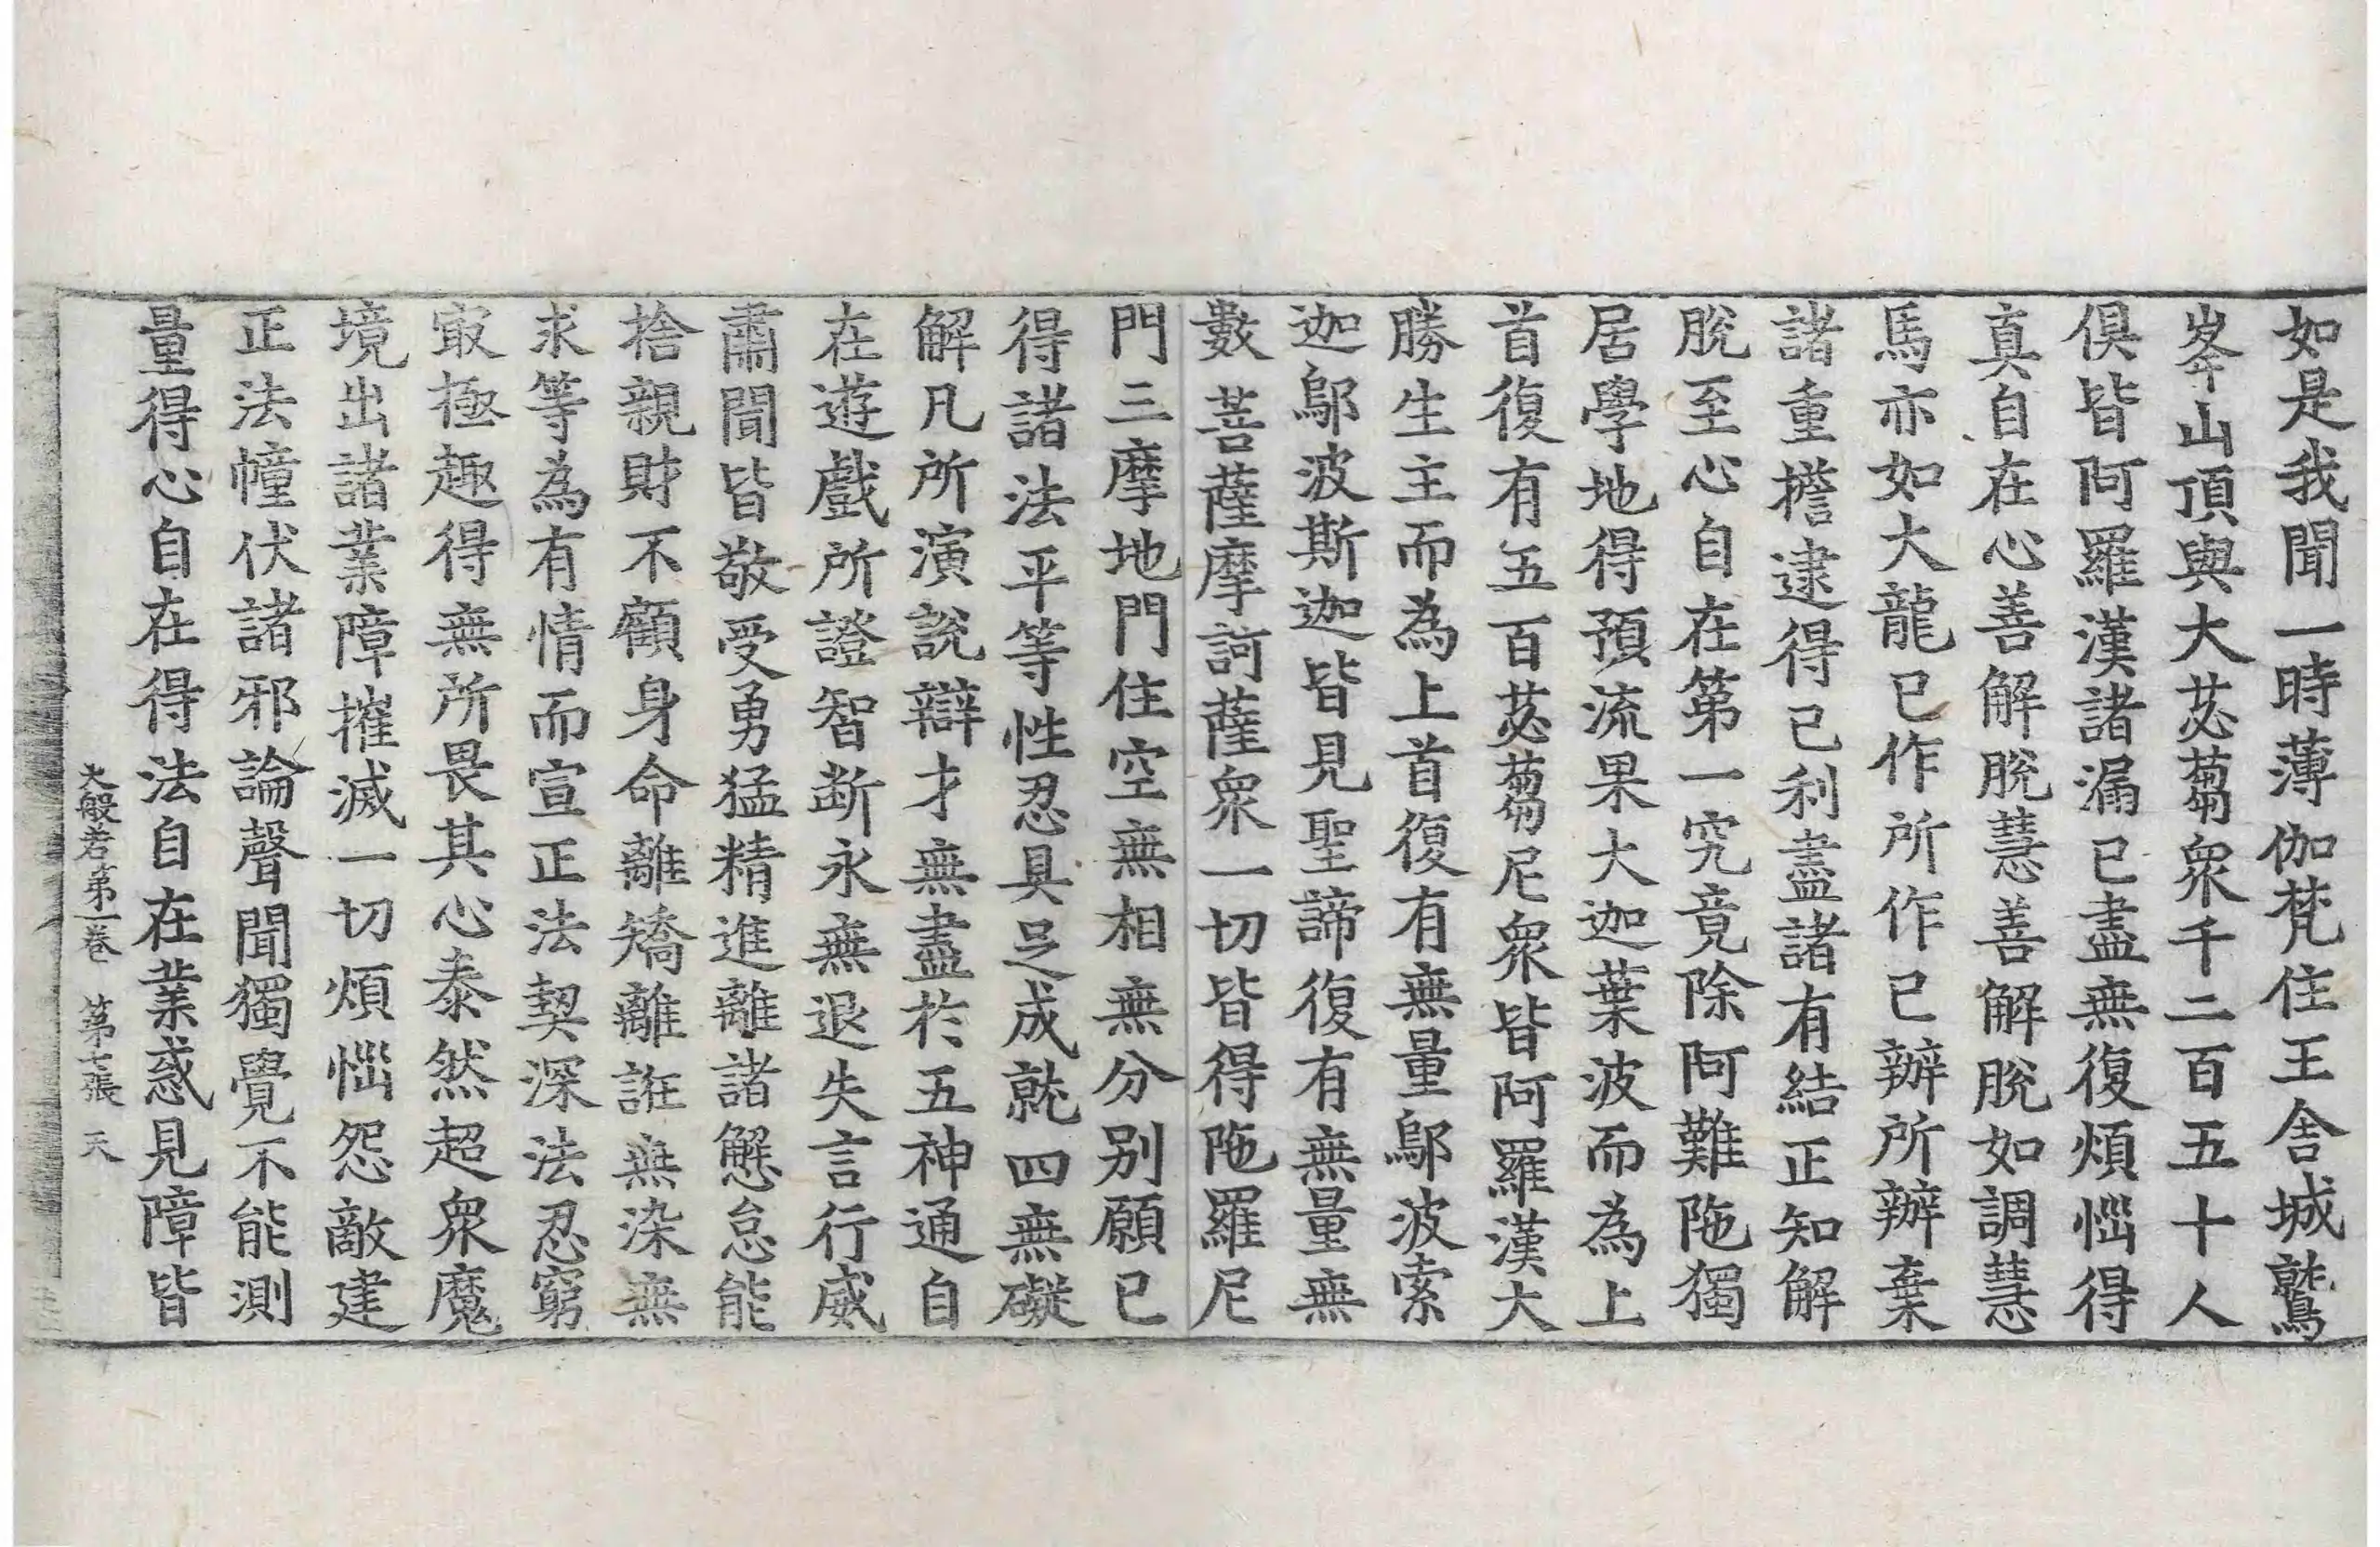 如是我聞一時薄伽梵住王舍城鷲
峯山頂與大苾蒭衆千二百五十人
俱皆阿羅漢諸漏已盡無復煩惱得
真自在心善解脫慧善解脫如調慧
馬亦如大龍已作所作已辦所辦棄
諸重擔逮得己利盡諸有結正知解
脫至心自在第一究竟除阿難陁獨
居學地得預流果大迦葉波而為上
首復有五百苾蒭尼衆皆阿羅漢大
勝生主而為上首復有無量鄔波索
迦鄔波斯迦皆見聖諦復有無量無
數菩薩摩訶薩衆一切皆得陁羅尼
門三摩地門住空無相無分別願已
得諸法平等性忍具足成就四無礙
解凡所演說辯才無盡於五神通自
在遊戲所證智斷永無退失言行威
肅聞皆敬受勇猛精進離諸懈怠能
捨親財不顧身命離矯離誑無染無
求等為有情而宣正法契深法忍窮
㝡極趣得無所畏其心泰然超衆魔
境出諸業障摧滅一切煩惱怨敵建
正法幢伏諸邪論聲聞獨覺不能測
量得心自在得法自在業惑見障皆
大般若第一卷 第七張 天